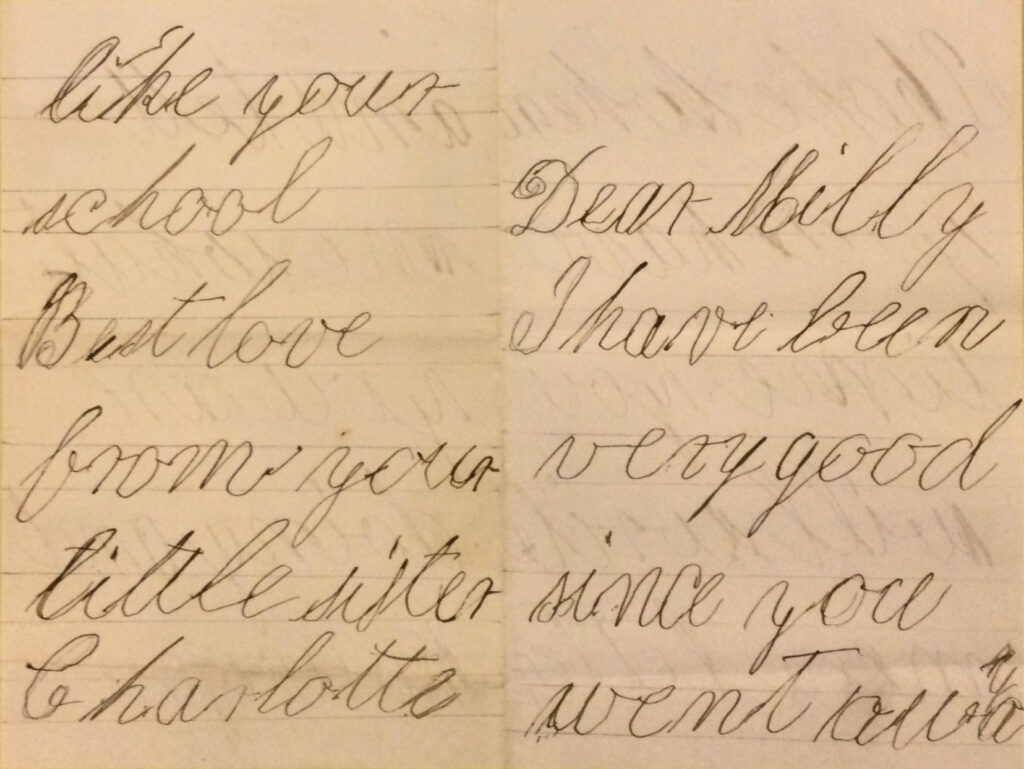 Dear Milly
I have been
very good
since you
went away
like your
school
Best love
from your
little sister
Charlotte